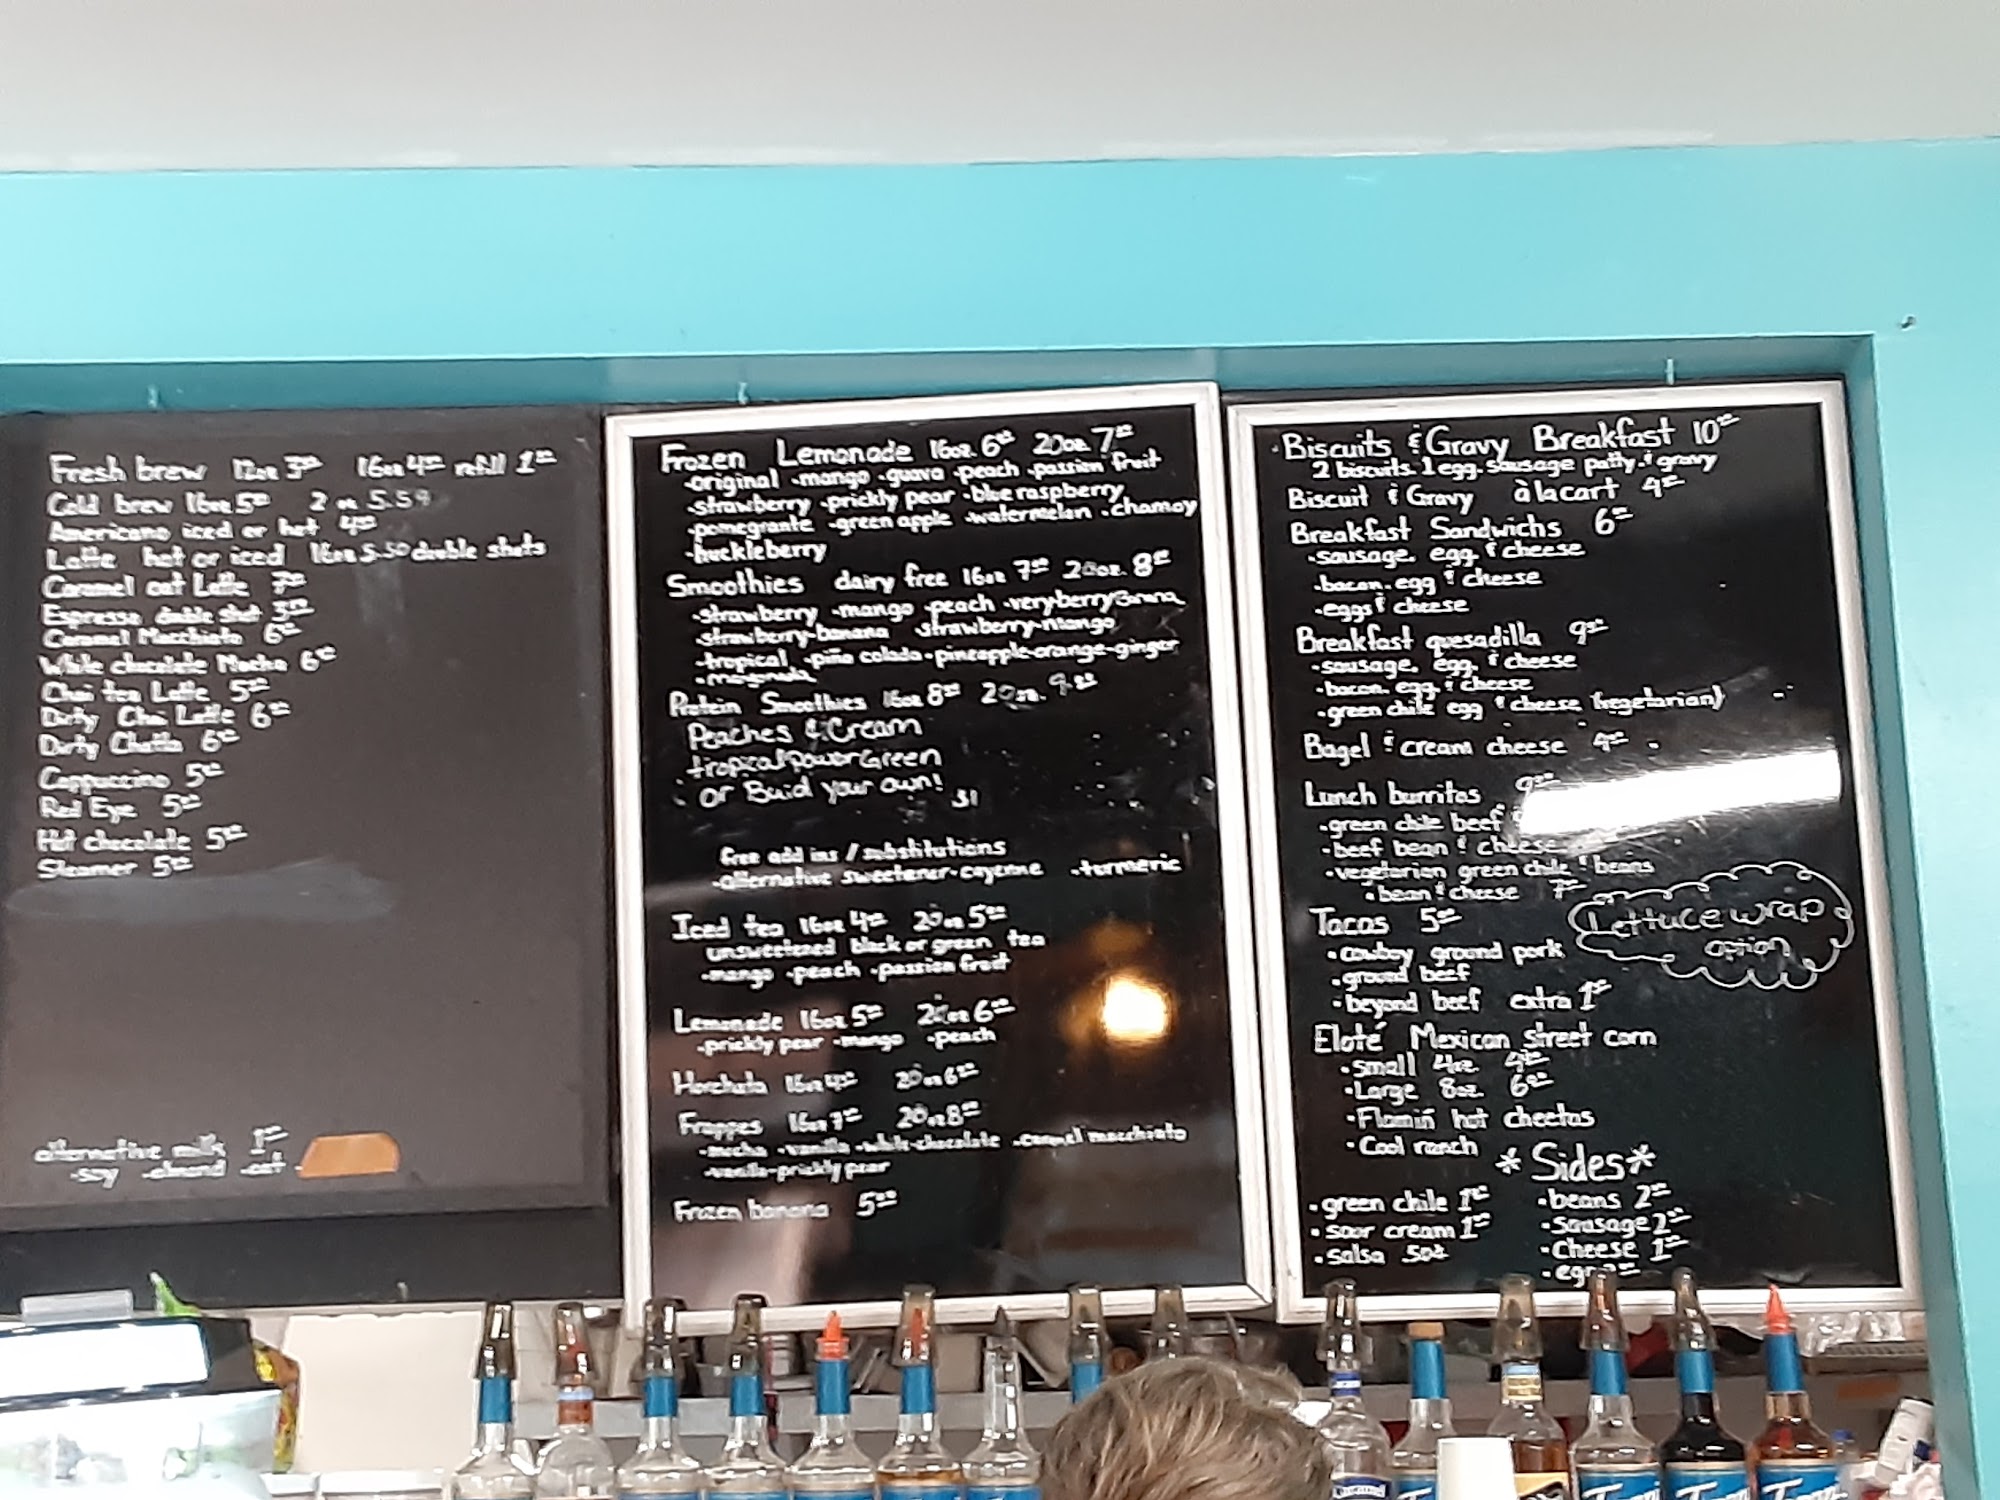 Fresh brew 12oz 3⁰⁰ 16oz 4⁰⁰ refill 1⁰⁰
Cold brew 16oz 5⁰⁰ 2 oz 5.59
Americano iced or hot 4⁰⁰
Latte hot or iced 16oz 5.50 double shots
Caramel oat Latte 7⁰⁰
Espresso double shot 3⁰⁰
Caramel Macchiato 6⁰⁰
White chocolate Mocha 6⁰⁰
Chai tea Latte 5⁰⁰
Dirty Chai Latte 6⁰⁰
Dirty Chatta 6⁰⁰
Cappuccino 5⁰⁰
Red Eye 5⁰⁰
Hot chocolate 5⁰⁰
Steamer 5⁰⁰
alternative milk 1⁰⁰
-soy -almond -oat
Frozen Lemonade 16oz. 6⁰⁰ 20oz. 7⁰⁰
-original -mango -guava -peach -passion fruit
-strawberry -prickly pear -blue raspberry
-pomegrante -green apple -watermelon -chamoy
-huckleberry
Smoothies dairy free 16oz 7⁰⁰ 20oz. 8⁰⁰
-strawberry -mango -peach -veryberry Banana
-strawberry-banana strawberry-mango
-tropical -piña colada -pineapple-orange-ginger
-mangonada
Protein Smoothies 16oz 8⁰⁰ 20oz. 9.⁰⁰
Peaches & Cream
tropical Power Green
or Build your own!
free add ins / substitutions
-alternative sweetener -cayenne -turmeric
Iced tea 16oz 4⁰⁰ 20oz 5⁰⁰
unsweetened black or green tea
-mango -peach -passion fruit
Lemonade 16oz 5⁰⁰ 20oz 6⁰⁰
-prickly pear -mango -peach
Horchata 16oz 4⁰⁰ 20oz 6⁰⁰
Frappes 16oz 7⁰⁰ 20oz 8⁰⁰
-mocha -vanilla -white-chocolate -caramel macchiato
-vanilla-prickly pear
Frozen banana 5⁰⁰
Biscuits & Gravy Breakfast 10⁰⁰
2 biscuits. 1 egg. sausage patty. & gravy
Biscuit & Gravy à la cart 4⁰⁰
Breakfast Sandwichs 6⁰⁰
-sausage. egg & cheese
-bacon. egg & cheese
-eggs & cheese
Breakfast quesadilla 9⁰⁰
-sausage. egg. & cheese
-bacon. egg & cheese
-green chile egg & cheese (vegetarian)
Bagel & cream cheese 4⁰⁰
Lunch burritos 9⁰⁰
-green chile beef
-beef bean & cheese
-vegetarian green chile & beans
-bean & cheese 7⁰⁰
Tacos 5⁰⁰
-cowboy ground pork
-ground beef
-beyond beef extra 1⁰⁰
Lettuce wrap
option
Eloté Mexican street corn
-Small 4oz 4⁰⁰
-Large 8oz. 6⁰⁰
-Flamin hot cheetos
-Cool ranch
*Sides*
-green chile 1⁰⁰
-sour cream 1⁰⁰
-salsa 50¢
-beans 2⁰⁰
-sausage 2⁰⁰
-cheese 1⁰⁰
-egg